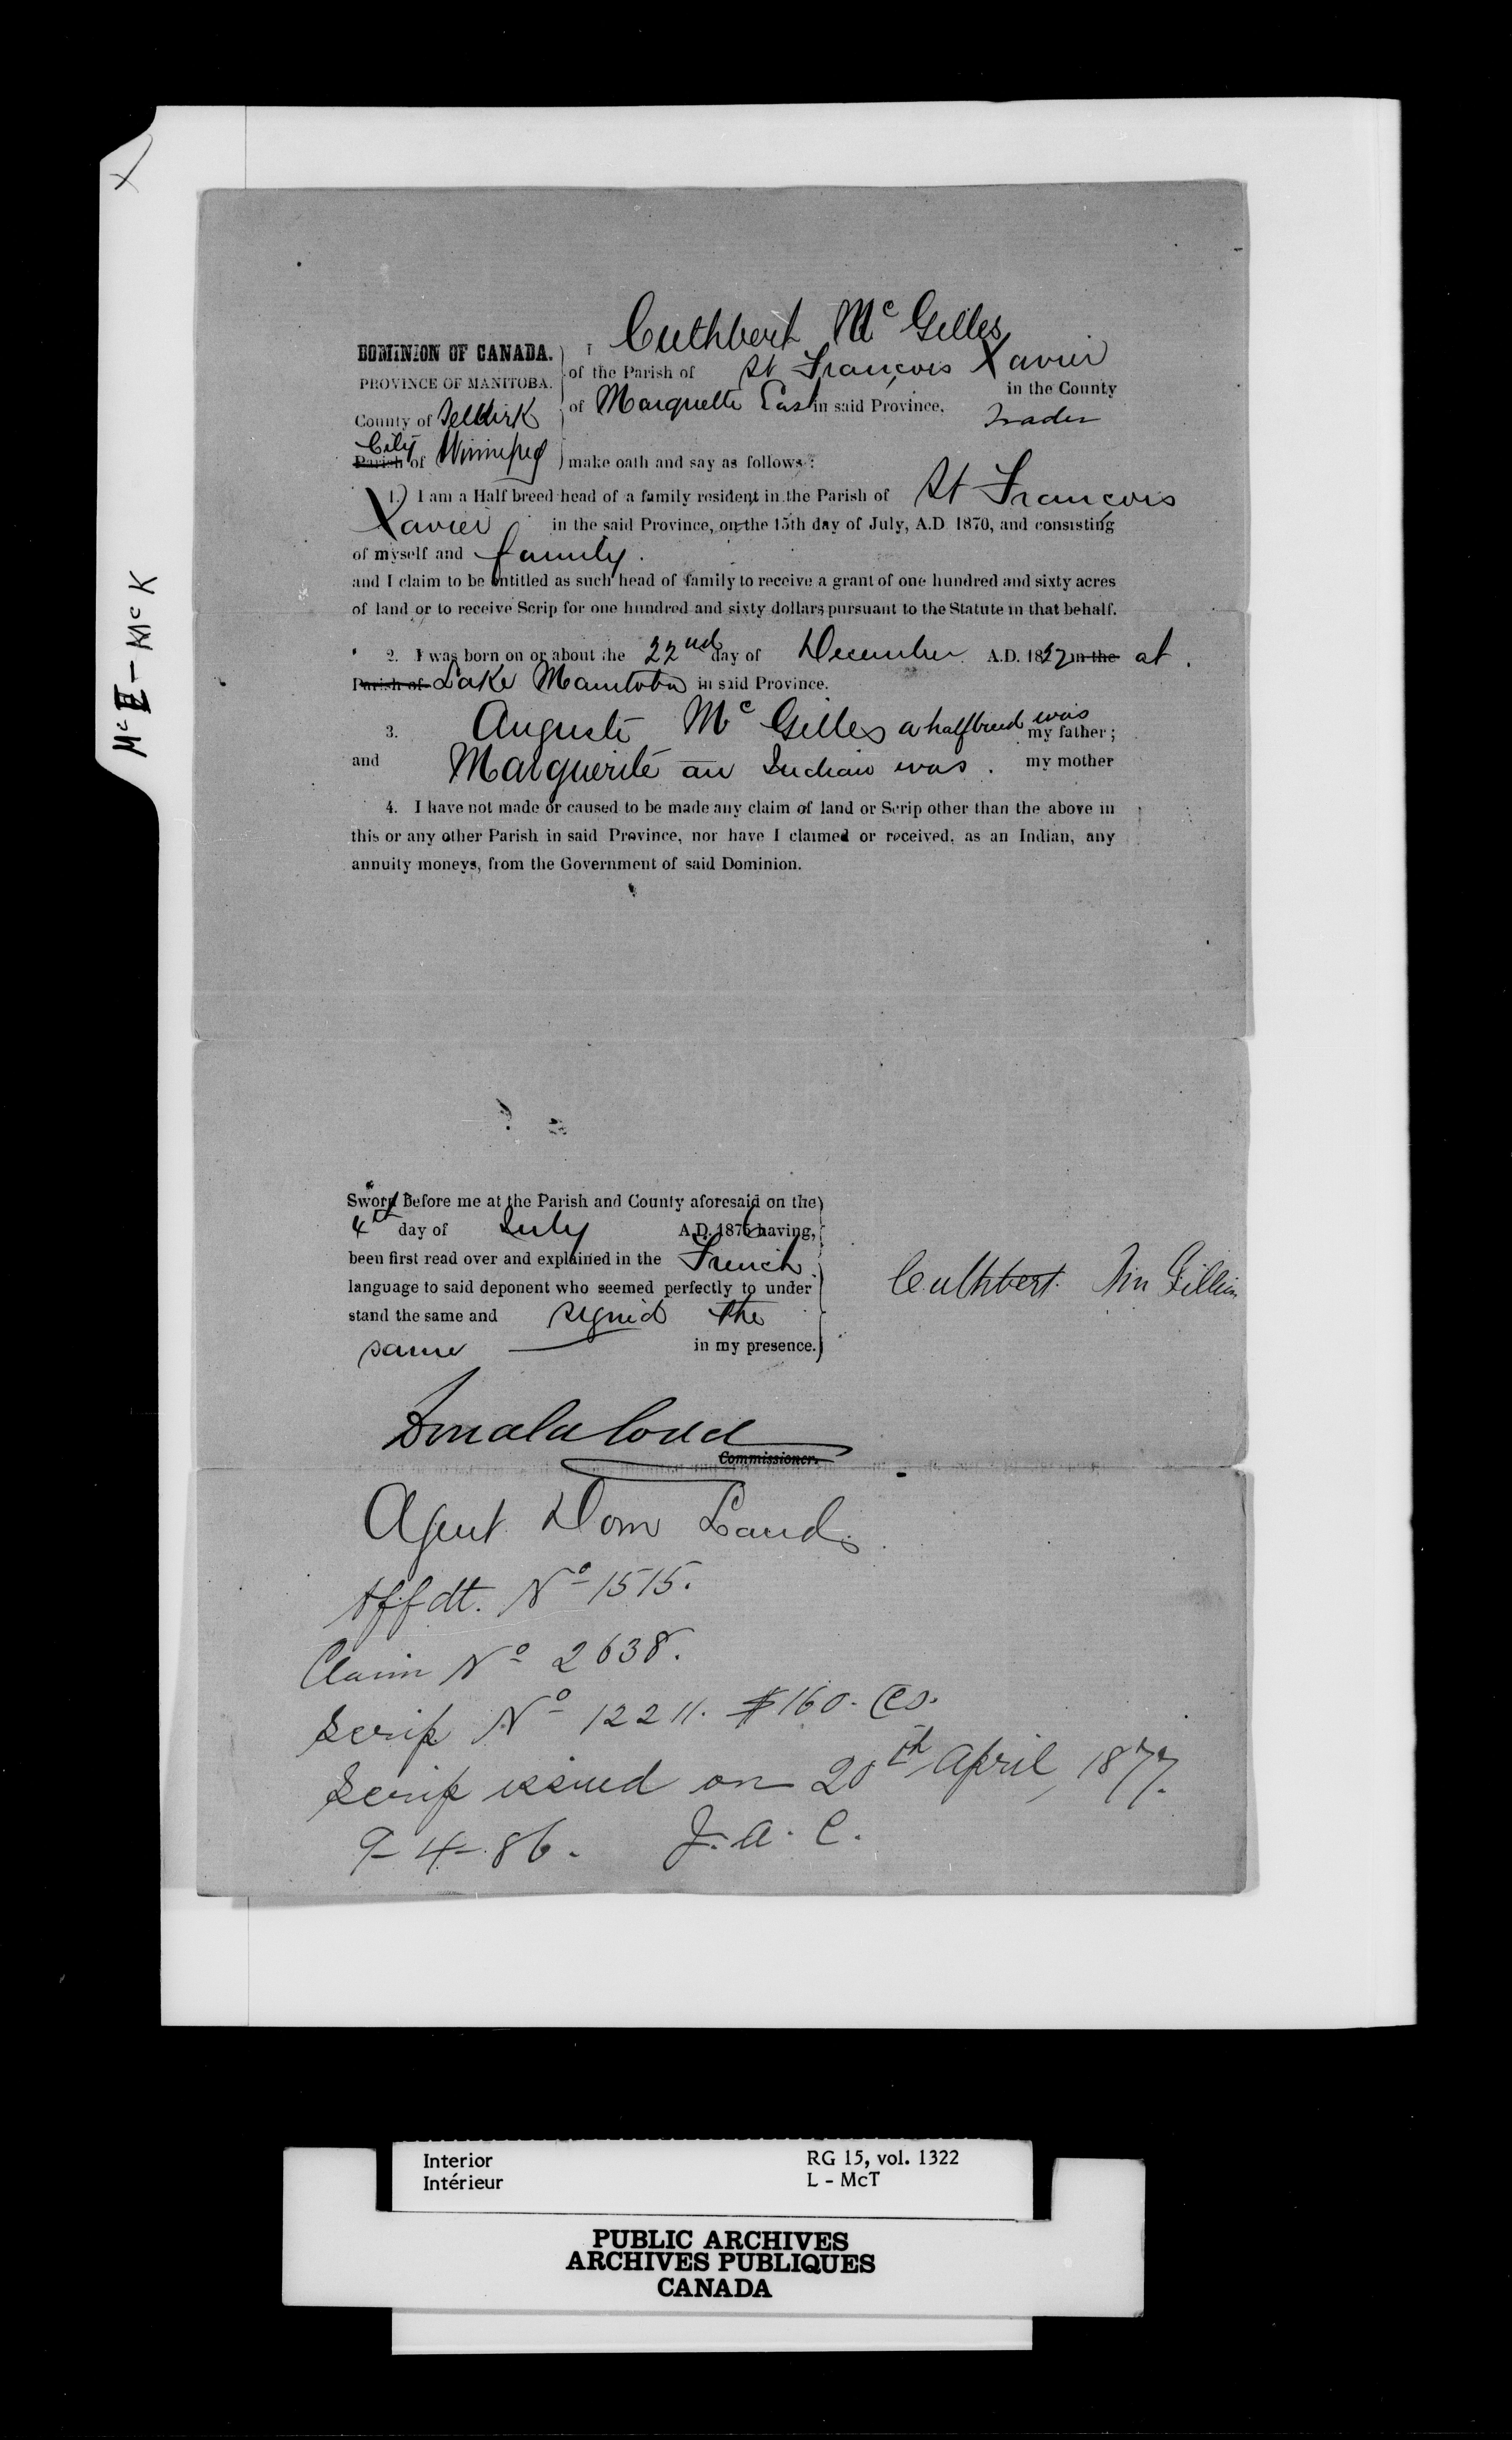 Mc I - McK
Cuthbert Mc Gilles
DOMINION OF CANADA. I
PROVINCE OF MANITOBA. of the Parish of St François Xavier
in the County
County of Selkirk of Marquette East in said Province, Trader
City
Parish of Winnipeg make oath and say as follows:
1. I am a Half breed head of a family resident in the Parish of St François
Xavier in the said Province, on the 15th day of July, A.D. 1870, and consisting
of myself and family.
and I claim to be entitled as such head of family to receive a grant of one hundred and sixty acres
of land or to receive Scrip for one hundred and sixty dollars pursuant to the Statute in that behalf.
2. I was born on or about the 22nd day of December A.D. 18 in the at
Parish of Lake Manitoba in said Province.
3. Auguste Mc Gilles a halfbreed was my father;
and Marguerite an Indian was my mother
4. I have not made or caused to be made any claim of land or Scrip other than the above in
this or any other Parish in said Province, nor have I claimed or received, as an Indian, any
annuity moneys, from the Government of said Dominion.
Sworn before me at the Parish and County aforesaid on the
4th day of July A.D. 1876 having,
been first read over and explained in the French
language to said deponent who seemed perfectly to under
stand the same and signed the
same in my presence.
Cuthbert
Donald Codd
Commissioner.
Agent Dom Lands
Affdt. No 1515.
Claim No 2638.
Scrip No 12211. $160.
Scrip issued on 20th April, 1877.
9-4-86. J.A.C.
Interior RG 15, vol. 1322
Intérieur L - McT
PUBLIC ARCHIVES
ARCHIVES PUBLIQUES
CANADA